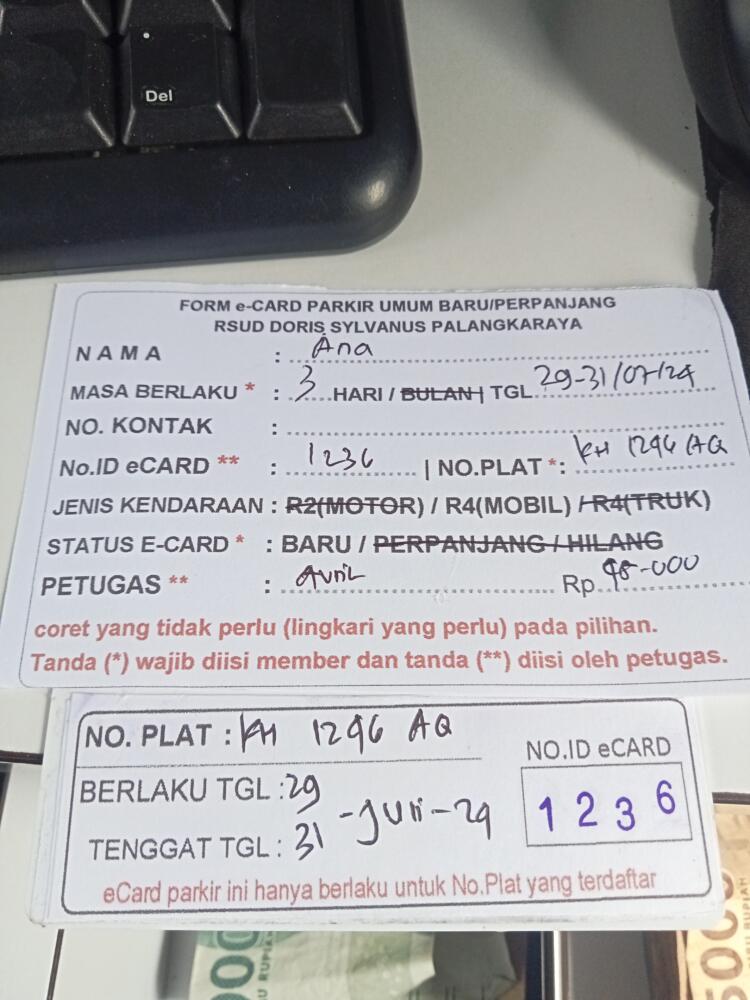 Del
FORM e-CARD PARKIR UMUM BARU/PERPANJANG
RSUD DORIS SYLVANUS PALANGKARAYA
NAMA : Ana
MASA BERLAKU * : 3 HARI / BULAN | TGL 29-31/07/24
NO. KONTAK :
No.ID eCARD ** : 1236 | NO.PLAT *: KH 1296 AQ
JENIS KENDARAAN : R2(MOTOR) / R4(MOBIL) / R4(TRUK)
STATUS E-CARD * : BARU / PERPANJANG / HILANG
PETUGAS ** : Avril Rp 98-000
coret yang tidak perlu (lingkari yang perlu) pada pilihan.
Tanda (*) wajib diisi member dan tanda (**) diisi oleh petugas.
NO. PLAT : KH 1296 AQ
NO.ID eCARD
1236
BERLAKU TGL : 29
TENGGAT TGL : 31 -Juli-24
eCard parkir ini hanya berlaku untuk No.Plat yang terdaftar